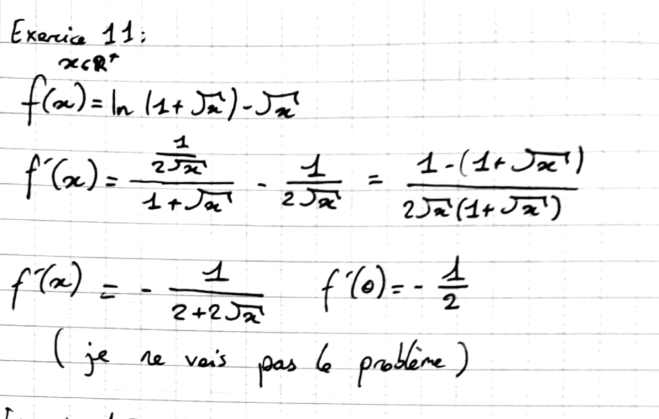 Exercice 11:
x∈R⁺
f(x) = ln (1+√x) - √x
f'(x) = (1/(2√x))/(1+√x) - 1/(2√x) = (1-(1+√x))/(2√x(1+√x))
f'(x) = - 1/(2+2√x) f'(0) = - 1/2
(je ne vois pas le problème)